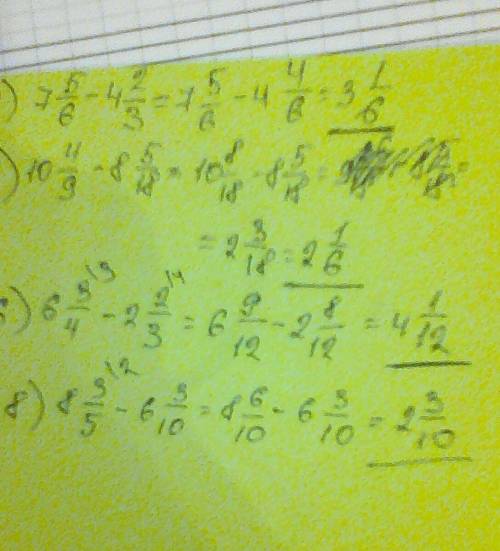 ) 7 5/6 - 4 2/3 = 7 5/6 - 4 4/6 = 3 1/6
) 10 4/9 - 8 5/18 = 10 8/18 - 8 5/18 =
= 2 3/18 = 2 1/6
) 6 3/4 \3 - 2 2/3 \4 = 6 9/12 - 2 8/12 = 4 1/12
8) 8 3/5 \2 - 6 3/10 = 8 6/10 - 6 3/10 = 2 3/10